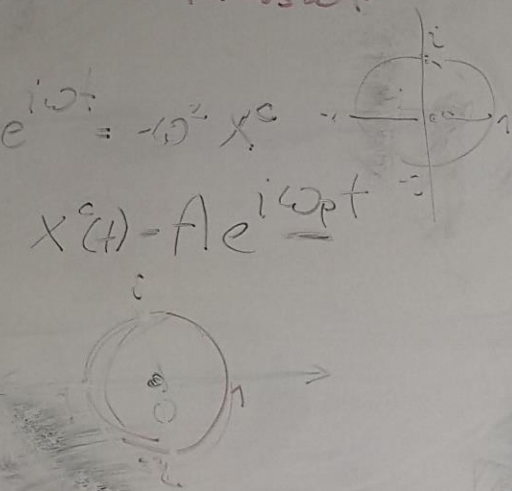 i
e^{iωt} = -ω² x^c
-1
1
-i
x^c(t) = A e^{iω_p t}
i
1
-i